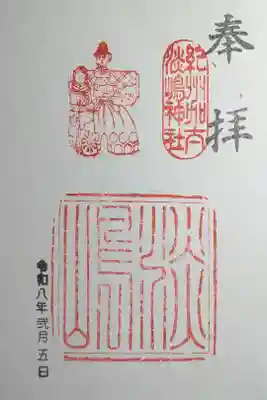 奉拝
紀州加太
淡嶋神社
淡嶋
令和八年弐月五日